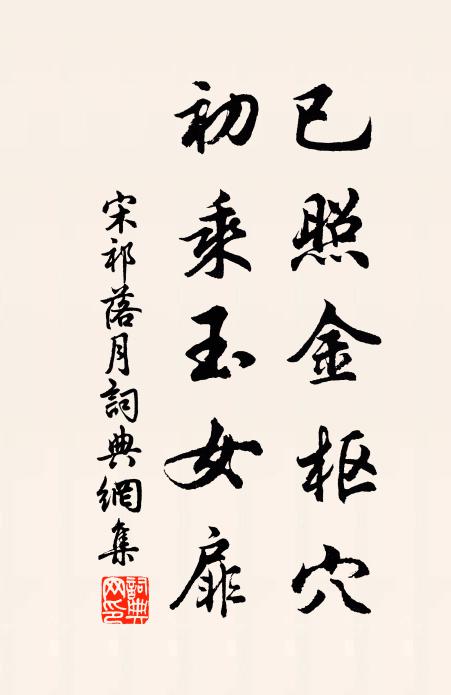 已照金枢穴
初乘玉女扉
宋祁落月詞典網集
詞典網印